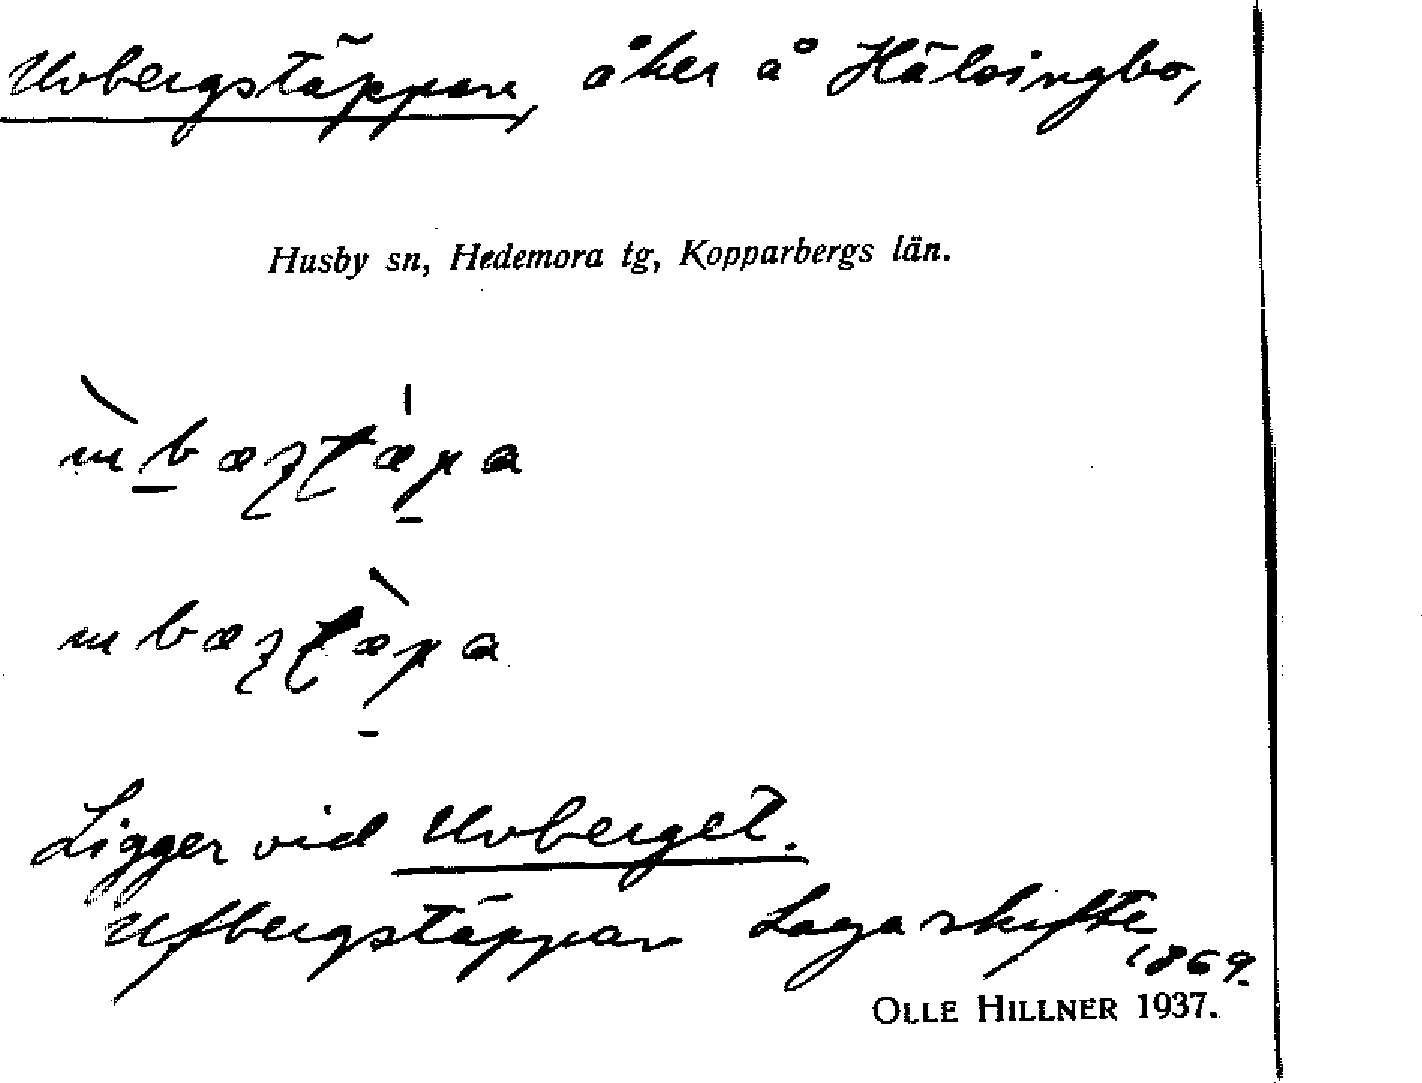 Uvbergstäppan, åker å Hälsingbo,
Husby sn, Hedemora tg, Kopparbergs län.
Ligger vid Uvberget.
Ufbergstäppan Laga skifte
1869.
OLLE HILLNER 1937.